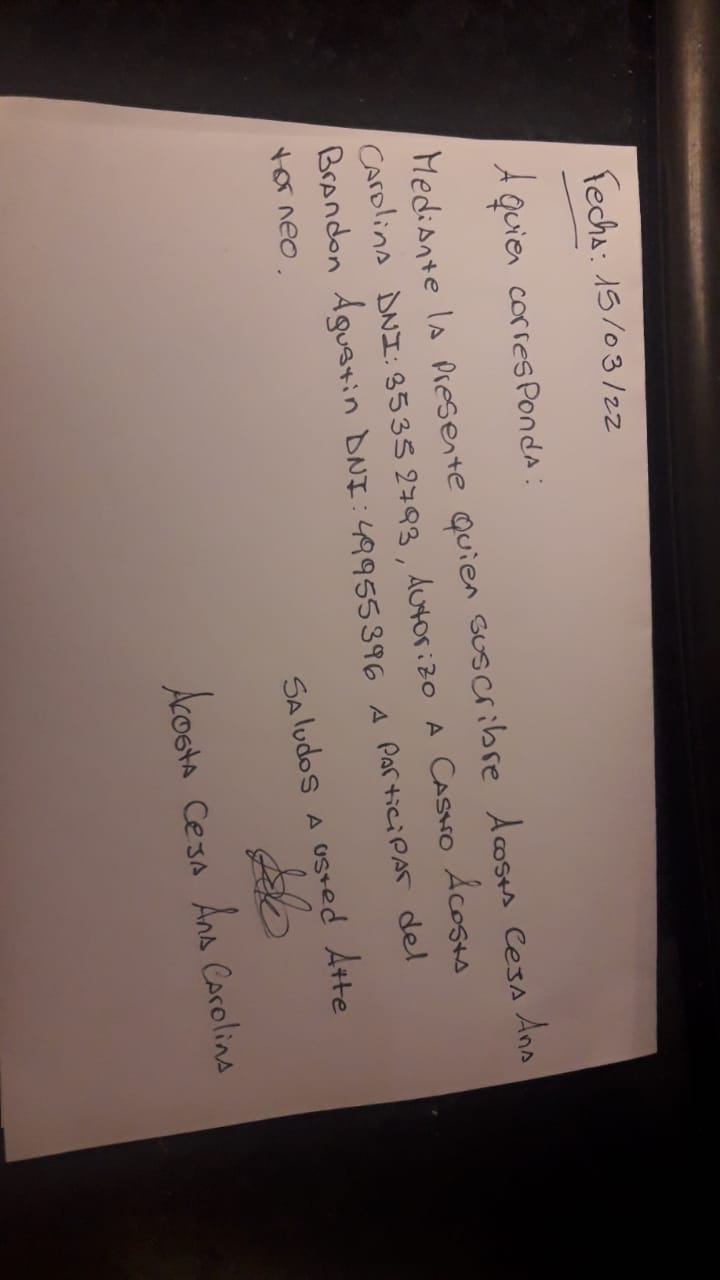 Fecha: 15/03/22
A quien corresponda:
Mediante la presente quien suscribre Acosta Ceja Ana
Carolina DNI: 35352793, Autorizo a Castro Acosta
Brandon Agustin DNI: 49955396 a participar del
torneo.
Saludos a usted Atte
Acosta Ceja Ana Carolina